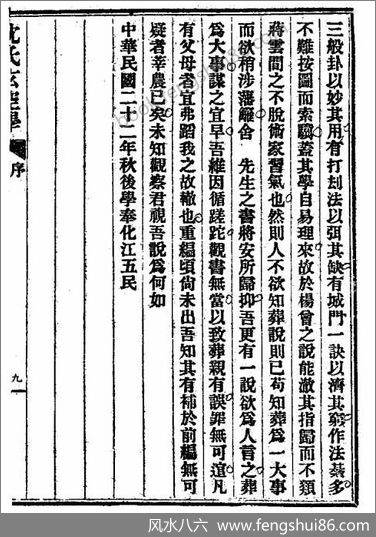 三般卦以妙其用有打刼法以弭其缺有城門一訣以濟其窮作法綦多
不難按圖而索驥蓋其學自易理來故於楊曾之說能澈其指歸而不類
蔣雲間之不脫術家習氣也然則人不欲知葬說則已苟知葬爲一大事
而欲稍涉藩籬舍　先生之書將安所歸抑吾更有一說欲爲人言之葬
爲大事謀之宜早吾維因循蹉跎觀書無當以致葬親有誤罪無可逭凡
有父母者宜弗蹈我之故轍也重編頃尙未出吾知其有補於前編無可
疑者莘農已矣未知觀察君視吾說爲何如
中華民國二十二年秋後學奉化江五民
沈氏玄空學
序
九
风水八六 www.fengshui86.com